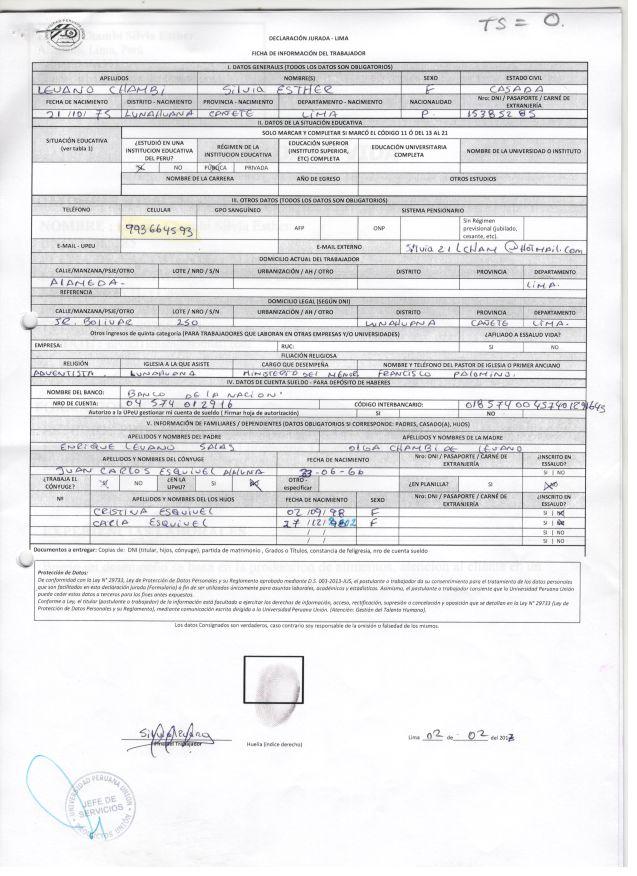 TS = 0.
DECLARACIÓN JURADA - LIMA
FICHA DE INFORMACIÓN DEL TRABAJADOR
I. DATOS GENERALES (TODOS LOS DATOS SON OBLIGATORIOS)
APELLIDOS NOMBRE(S) SEXO ESTADO CIVIL
LEVANO CHAMBI Silvia ESTHER F CASADA
FECHA DE NACIMIENTO DISTRITO - NACIMIENTO PROVINCIA - NACIMIENTO DEPARTAMENTO - NACIMIENTO NACIONALIDAD Nro: DNI / PASAPORTE / CARNÉ DE EXTRANJERÍA
21/10/75 LUNAHUANA CAÑETE LIMA P. 15385285
II. DATOS DE LA SITUACIÓN EDUCATIVA
SOLO MARCAR Y COMPLETAR SI MARCÓ EL CÓDIGO 11 Ó DEL 13 AL 21
SITUACIÓN EDUCATIVA (ver tabla 1) ¿ESTUDIÓ EN UNA INSTITUCION EDUCATIVA DEL PERU? RÉGIMEN DE LA INSTITUCION EDUCATIVA EDUCACIÓN SUPERIOR (INSTITUTO SUPERIOR, ETC) COMPLETA EDUCACIÓN UNIVERSITARIA COMPLETA NOMBRE DE LA UNIVERSIDAD O INSTITUTO
SI NO PÚBLICA PRIVADA
NOMBRE DE LA CARRERA AÑO DE EGRESO OTROS ESTUDIOS
III. OTROS DATOS (TODOS LOS DATOS SON OBLIGATORIOS)
TELÉFONO CELULAR GPO SANGUÍNEO SISTEMA PENSIONARIO
993664593 AFP ONP Sin Régimen previsional (jubilado, cesante, etc).
E-MAIL - UPEU E-MAIL EXTERNO Silvia21LCHAM@HOTMAIL.COM
DOMICILIO ACTUAL DEL TRABAJADOR
CALLE/MANZANA/PSJE/OTRO LOTE / NRO / S/N URBANIZACIÓN / AH / OTRO DISTRITO PROVINCIA DEPARTAMENTO
ALAMEDA. LIMA.
REFERENCIA
DOMICILIO LEGAL (SEGÚN DNI)
CALLE/MANZANA/PSJE/OTRO LOTE / NRO / S/N URBANIZACIÓN / AH / OTRO DISTRITO PROVINCIA DEPARTAMENTO
JR. BOLIVAR 250 LUNAHUANA CAÑETE LIMA.
Otros ingresos de quinta categoría (PARA TRABAJADORES QUE LABORAN EN OTRAS EMPRESAS Y/O UNIVERSIDADES) ¿AFILIADO A ESSALUD VIDA?
EMPRESA: RUC: SI NO
FILIACIÓN RELIGIOSA
RELIGIÓN IGLESIA A LA QUE ASISTE CARGO QUE DESEMPEÑA NOMBRE Y TELÉFONO DEL PASTOR DE IGLESIA O PRIMER ANCIANO
ADVENTISTA. LUNAHUANA MINISTERIO DEL MENOR FRANCISCO PALOMINO.
IV. DATOS DE CUENTA SUELDO - PARA DEPÓSITO DE HABERES
NOMBRE DEL BANCO: BANCO DE LA NACION
NRO DE CUENTA: 04 574 012916 CÓDIGO INTERBANCARIO:
Autorizo a la UPeU gestionar mi cuenta de sueldo ( firmar hoja de autorización) SI NO
V. INFORMACIÓN DE FAMILIARES / DEPENDIENTES (DATOS OBLIGATORIOS SI CORRESPONDE: PADRES, CASADO(A), HIJOS)
APELLIDOS Y NOMBRES DEL PADRE APELLIDOS Y NOMBRES DE LA MADRE
ENRIQUE LEVANO SALAS OLGA CHAMBI DE LEVANO
APELLIDOS Y NOMBRES DEL CÓNYUGE FECHA DE NACIMIENTO Nro: DNI / PASAPORTE / CARNÉ DE EXTRANJERÍA ¿INSCRITO EN ESSALUD?
JUAN CARLOS ESQUIVEL
¿TRABAJA EL CÓNYUGE? SI NO ¿EN LA UPeU? SI NO OTRO - especificar ¿EN PLANILLA? SI NO
Nº APELLIDOS Y NOMBRES DE LOS HIJOS FECHA DE NACIMIENTO SEXO ¿INSCRITO EN ESSALUD?
CRISTINA ESQUIVEL 02/09/98 F SI NO
CARLA ESQUIVEL 27/12/2002 F SI NO
/ / SI NO
/ / SI NO
Documentos a entregar: Copias de: DNI (titular, hijos, cónyuge), partida de matrimonio , Grados o Títulos, constancia de feligresía, nro de cuenta sueldo
Protección de Datos:
De conformidad con la Ley N° 29733, Ley de Protección de Datos Personales y su Reglamento aprobado mediante D.S. 003-2013-JUS, el postulante o trabajador da su consentimiento para el tratamiento de los datos personales
que son facilitados en esta declaración jurada (Formulario) a fin de ser utilizados únicamente para asuntos laborales, académicos y estadísticos. Asimismo, el postulante o trabajador consiente que la Universidad Peruana Unión
pueda ceder estos datos a terceros para los fines antes expuestos.
Conforme a Ley, el titular (postulante o trabajador) de la información está facultado a ejercitar los derechos de información, acceso, rectificación, supresión o cancelación y oposición que se detallan en la Ley N° 29733 (Ley de
Protección de Datos Personales y su Reglamento), mediante comunicación escrita dirigida a la Universidad Peruana Unión. (Atención: Gestión del Talento Humano).
Los datos Consignados son verdaderos, caso contrario soy responsable de la omisión o falsedad de los mismos.
Firma del Trabajador Huella (índice derecho) Lima 02 de 02 del 2017
UNIVERSIDAD PERUANA UNION
JEFE DE SERVICIOS
PRODUCTOS UNIÓN